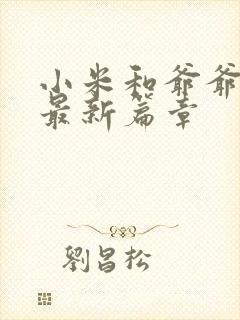 小米和爷爷
最新篇章
劉昌松